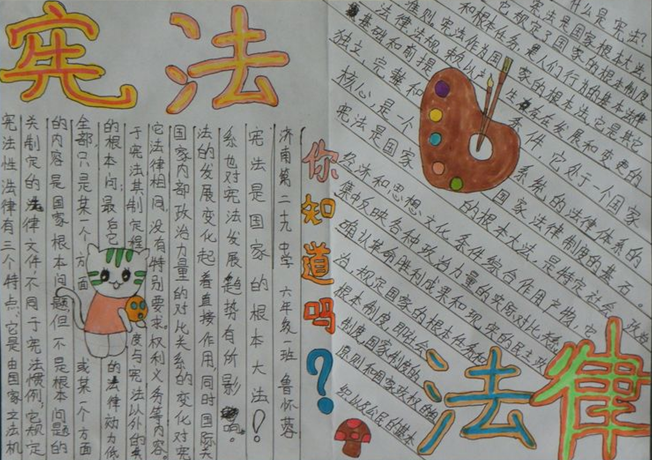 宪法
你知道吗?
法律
济南第二十九中学 六年级一班 鲁怀蓉
宪法是国家的根本大法!
系也对宪法发展趋势有所影响。
法的发展变化起着直接作用,同时国际关
国家内部政治力量的对比关系的变化对宪
它法律相同,没有特别要求,权利义务等内容,
于宪法其制定程 度与宪法以外的其
的根本问 最 的法律动力低
全部只是某一个方面 或某一个方面
的内容是国家根本问题但不是根本问题的
关制定的法律文件。不同于宪法惯例,它规定
宪法性法律有三个特点:它是由国家立法机
什么是宪法:
宪法是国家根本大法,
它规定了国家的根本制度
和根本任务,是人们行为的基本法律
准则。宪法作为国家的根本法,它是其它
法律、法规赖以 生 存在、发展和变更的
基础和前提 条件,它处于一个国家
独立、完整和 系统的法律体系的
核心,是一个 国家法律制度的基石。
宪法是国家 的根本大法,是特定社会政治
经济和思想文化条件综合作用产物,它
集中反映各种政治力量的实际对比关系,
确认革命胜利成果和现实的民主政
治,规定国家的根本任务和
根本制度,即社会
制度、国家制度的
原则和国家政权的组
织以及公民的基本